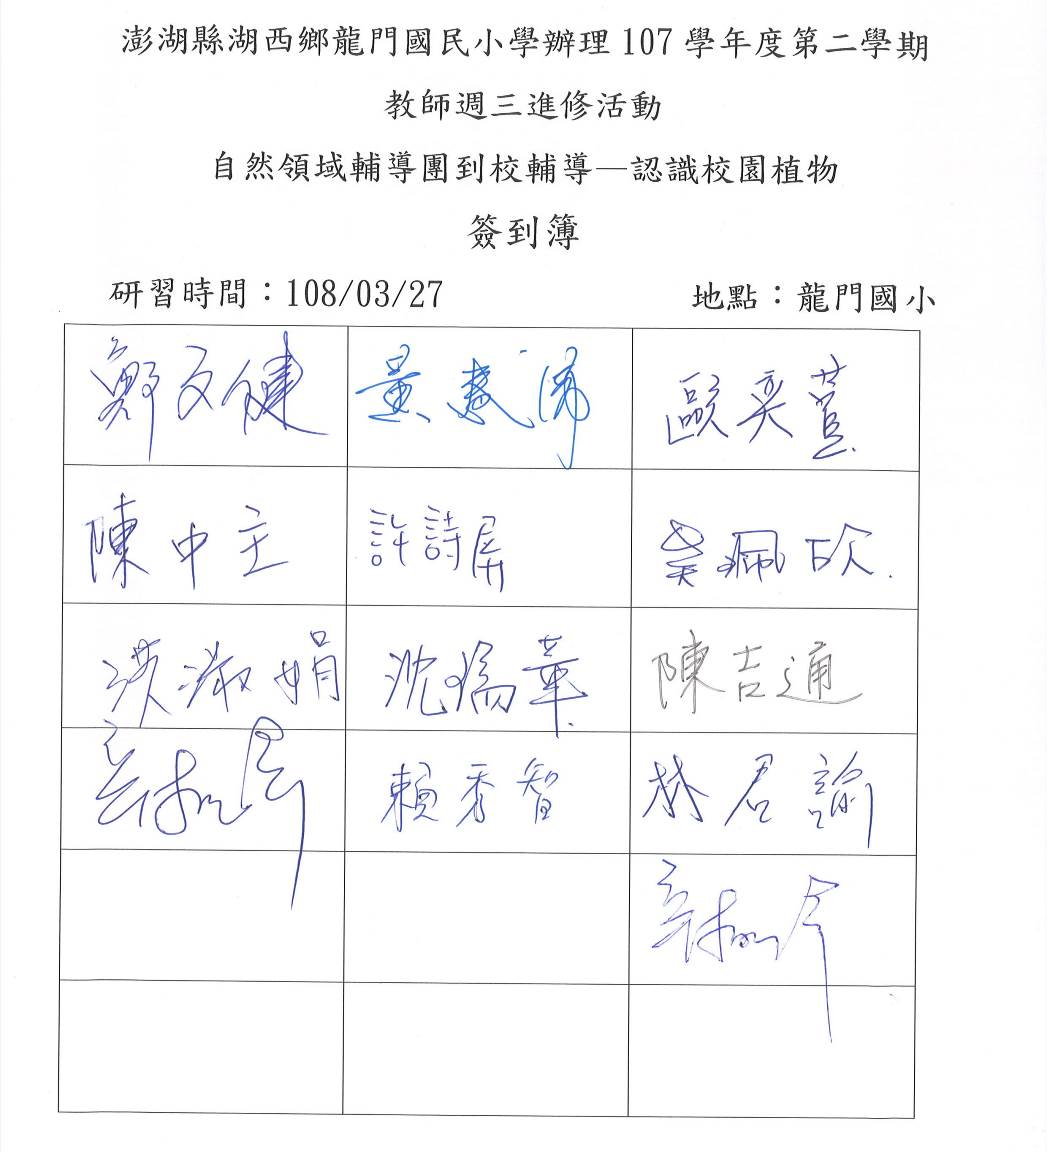 澎湖縣湖西鄉龍門國民小學辦理 107 學年度第二學期
教師週三進修活動
自然領域輔導團到校輔導—認識校園植物
簽到簿
研習時間：108/03/27 地點：龍門國小
鄭文健 黃 歐奕萱
陳中主 許詩屏 吳珮欣
洪淑娟 沈華 陳吉通
賴秀智 林君諭